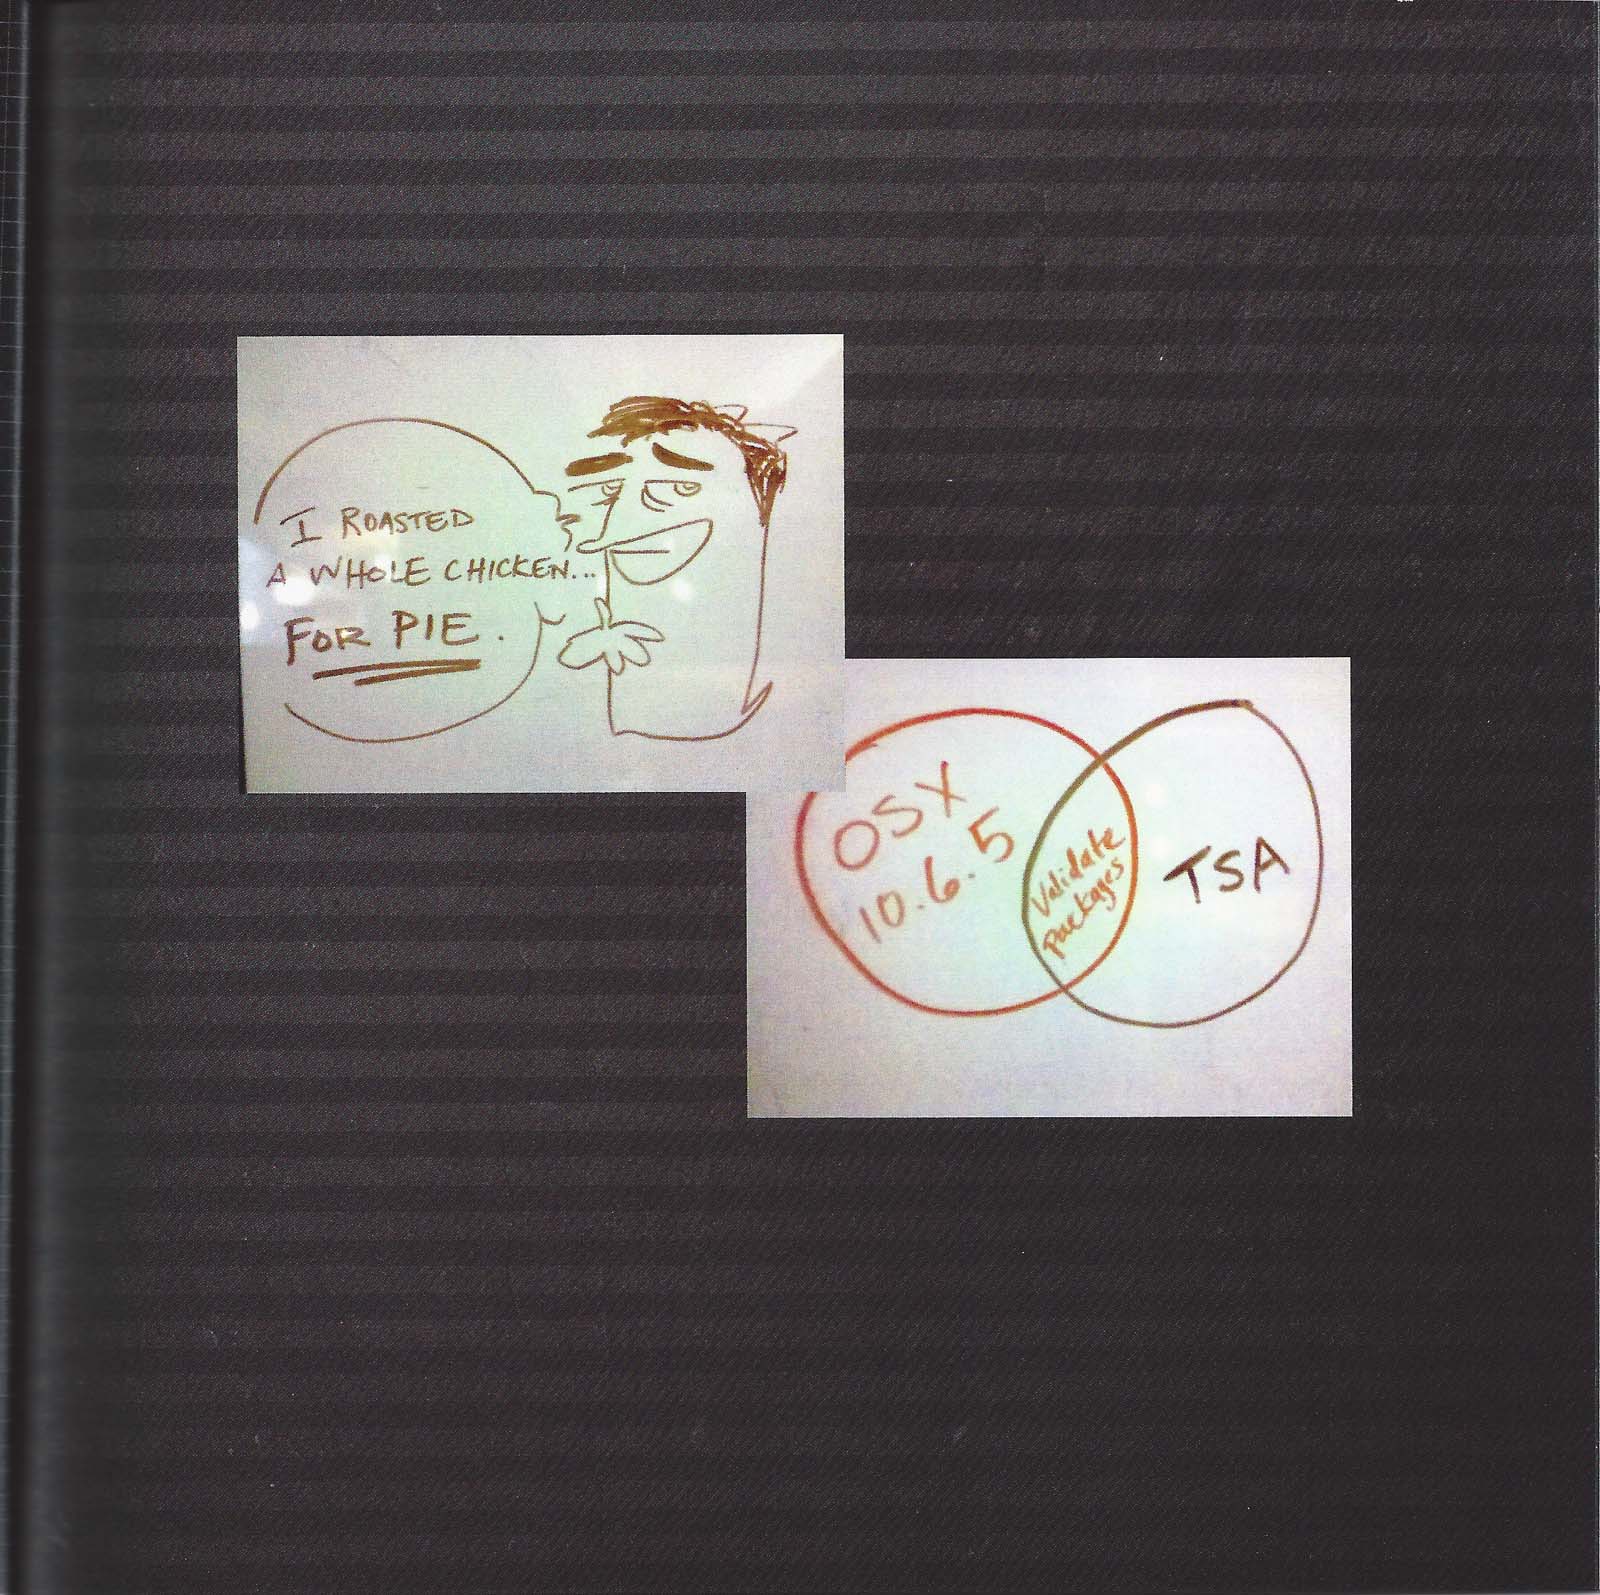 I ROASTED
A WHOLE CHICKEN...
FOR PIE.
OSX
10.6.5
Validate
packages
TSA